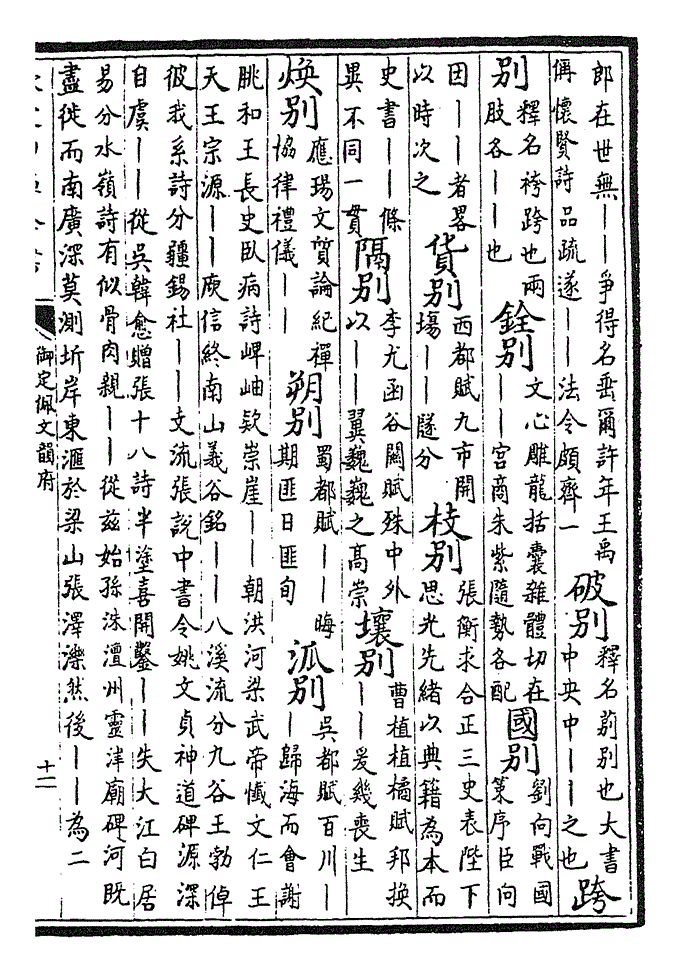 郎在世無——爭得名垂爾許年王禹
偁懷賢詩品疏遂——法令頗齊一
破别
釋名莂别也大書
中央中——之也
跨
别
釋名袴跨也兩
股各——也
銓别
文心雕龍括囊雜體切在
——宫商朱紫隨勢各配
國别
劉向戰國
策序臣向
因——者畧
以時次之
貨别
西都賦九市開
塲——隧分
枝别
張衡求合正三史表陛下
思光先緒以典籍為本而
史書——條
異不同一貫
隔别
李尤函谷關賦殊中外
以——翼巍巍之髙崇
壤别
曹植植橘賦邦換
——爰幾喪生
煥别
應瑒文質論紀禪
協律禮儀——
朔别
蜀都賦——晦
期匪日匪旬
泒别
吳都賦百川—
—歸海而會謝
朓和王長史臥病詩岬岫欵崇崖——朝洪河梁武帝懺文仁王
天王宗源——庾信終南山義谷銘——八溪流分九谷王勃倬
彼我系詩分疆錫社——支流張說中書令姚文貞神道碑源深
自虞——從吳韓愈贈張十八詩半塗喜開鑿——失大江白居
易分水嶺詩有似骨肉親——從兹始孫洙澶州靈津廟碑河既
盡徙而南廣深莫測圻岸東滙於梁山張澤濼然後——為二
御定佩文韻府
十二